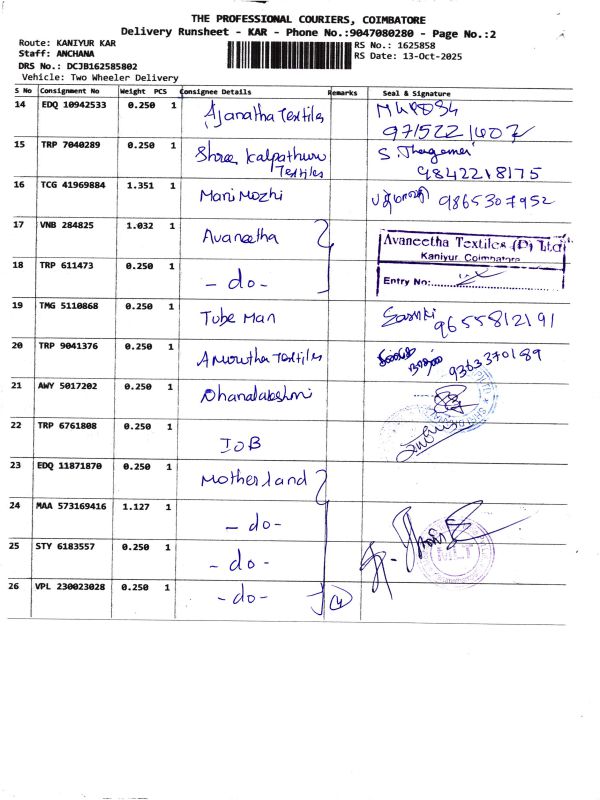 THE PROFESSIONAL COURIERS, COIMBATORE
Delivery Runsheet - KAR - Phone No.:9047080280 - Page No.:2
Route: KANIYUR KAR
RS No.: 1625858
Staff: ANCHANA
RS Date: 13-Oct-2025
DRS No.: DCJB162585802
Vehicle: Two Wheeler Delivery
S No Consignment No Weight PCS Consignee Details Remarks Seal & Signature
14 EDQ 10942533 0.250 1 Ajanatha Textiles
9715221407
15 TRP 7040289 0.250 1 Shree Kalpathuru Textiles S. Thangamai
9842218175
16 TCG 41969884 1.351 1 Mani Mozhi 9865307952
17 VNB 284825 1.032 1 Avaneetha
Avaneetha Textiles (P) Ltd
Kaniyur, Coimbatore
18 TRP 611473 0.250 1 - do -
Entry No:
19 TMG 5110868 0.250 1 Tube Man 9655812191
20 TRP 9041376 0.250 1 Amrutha Textiles 9363370189
21 AWY 5017202 0.250 1 Dhanalakshmi
22 TRP 6761808 0.250 1 IOB
23 EDQ 11871870 0.250 1 Motherland
24 MAA 573169416 1.127 1 - do -
25 STY 6183557 0.250 1 - do -
MLT
26 VPL 230023028 0.250 1 - do - 4